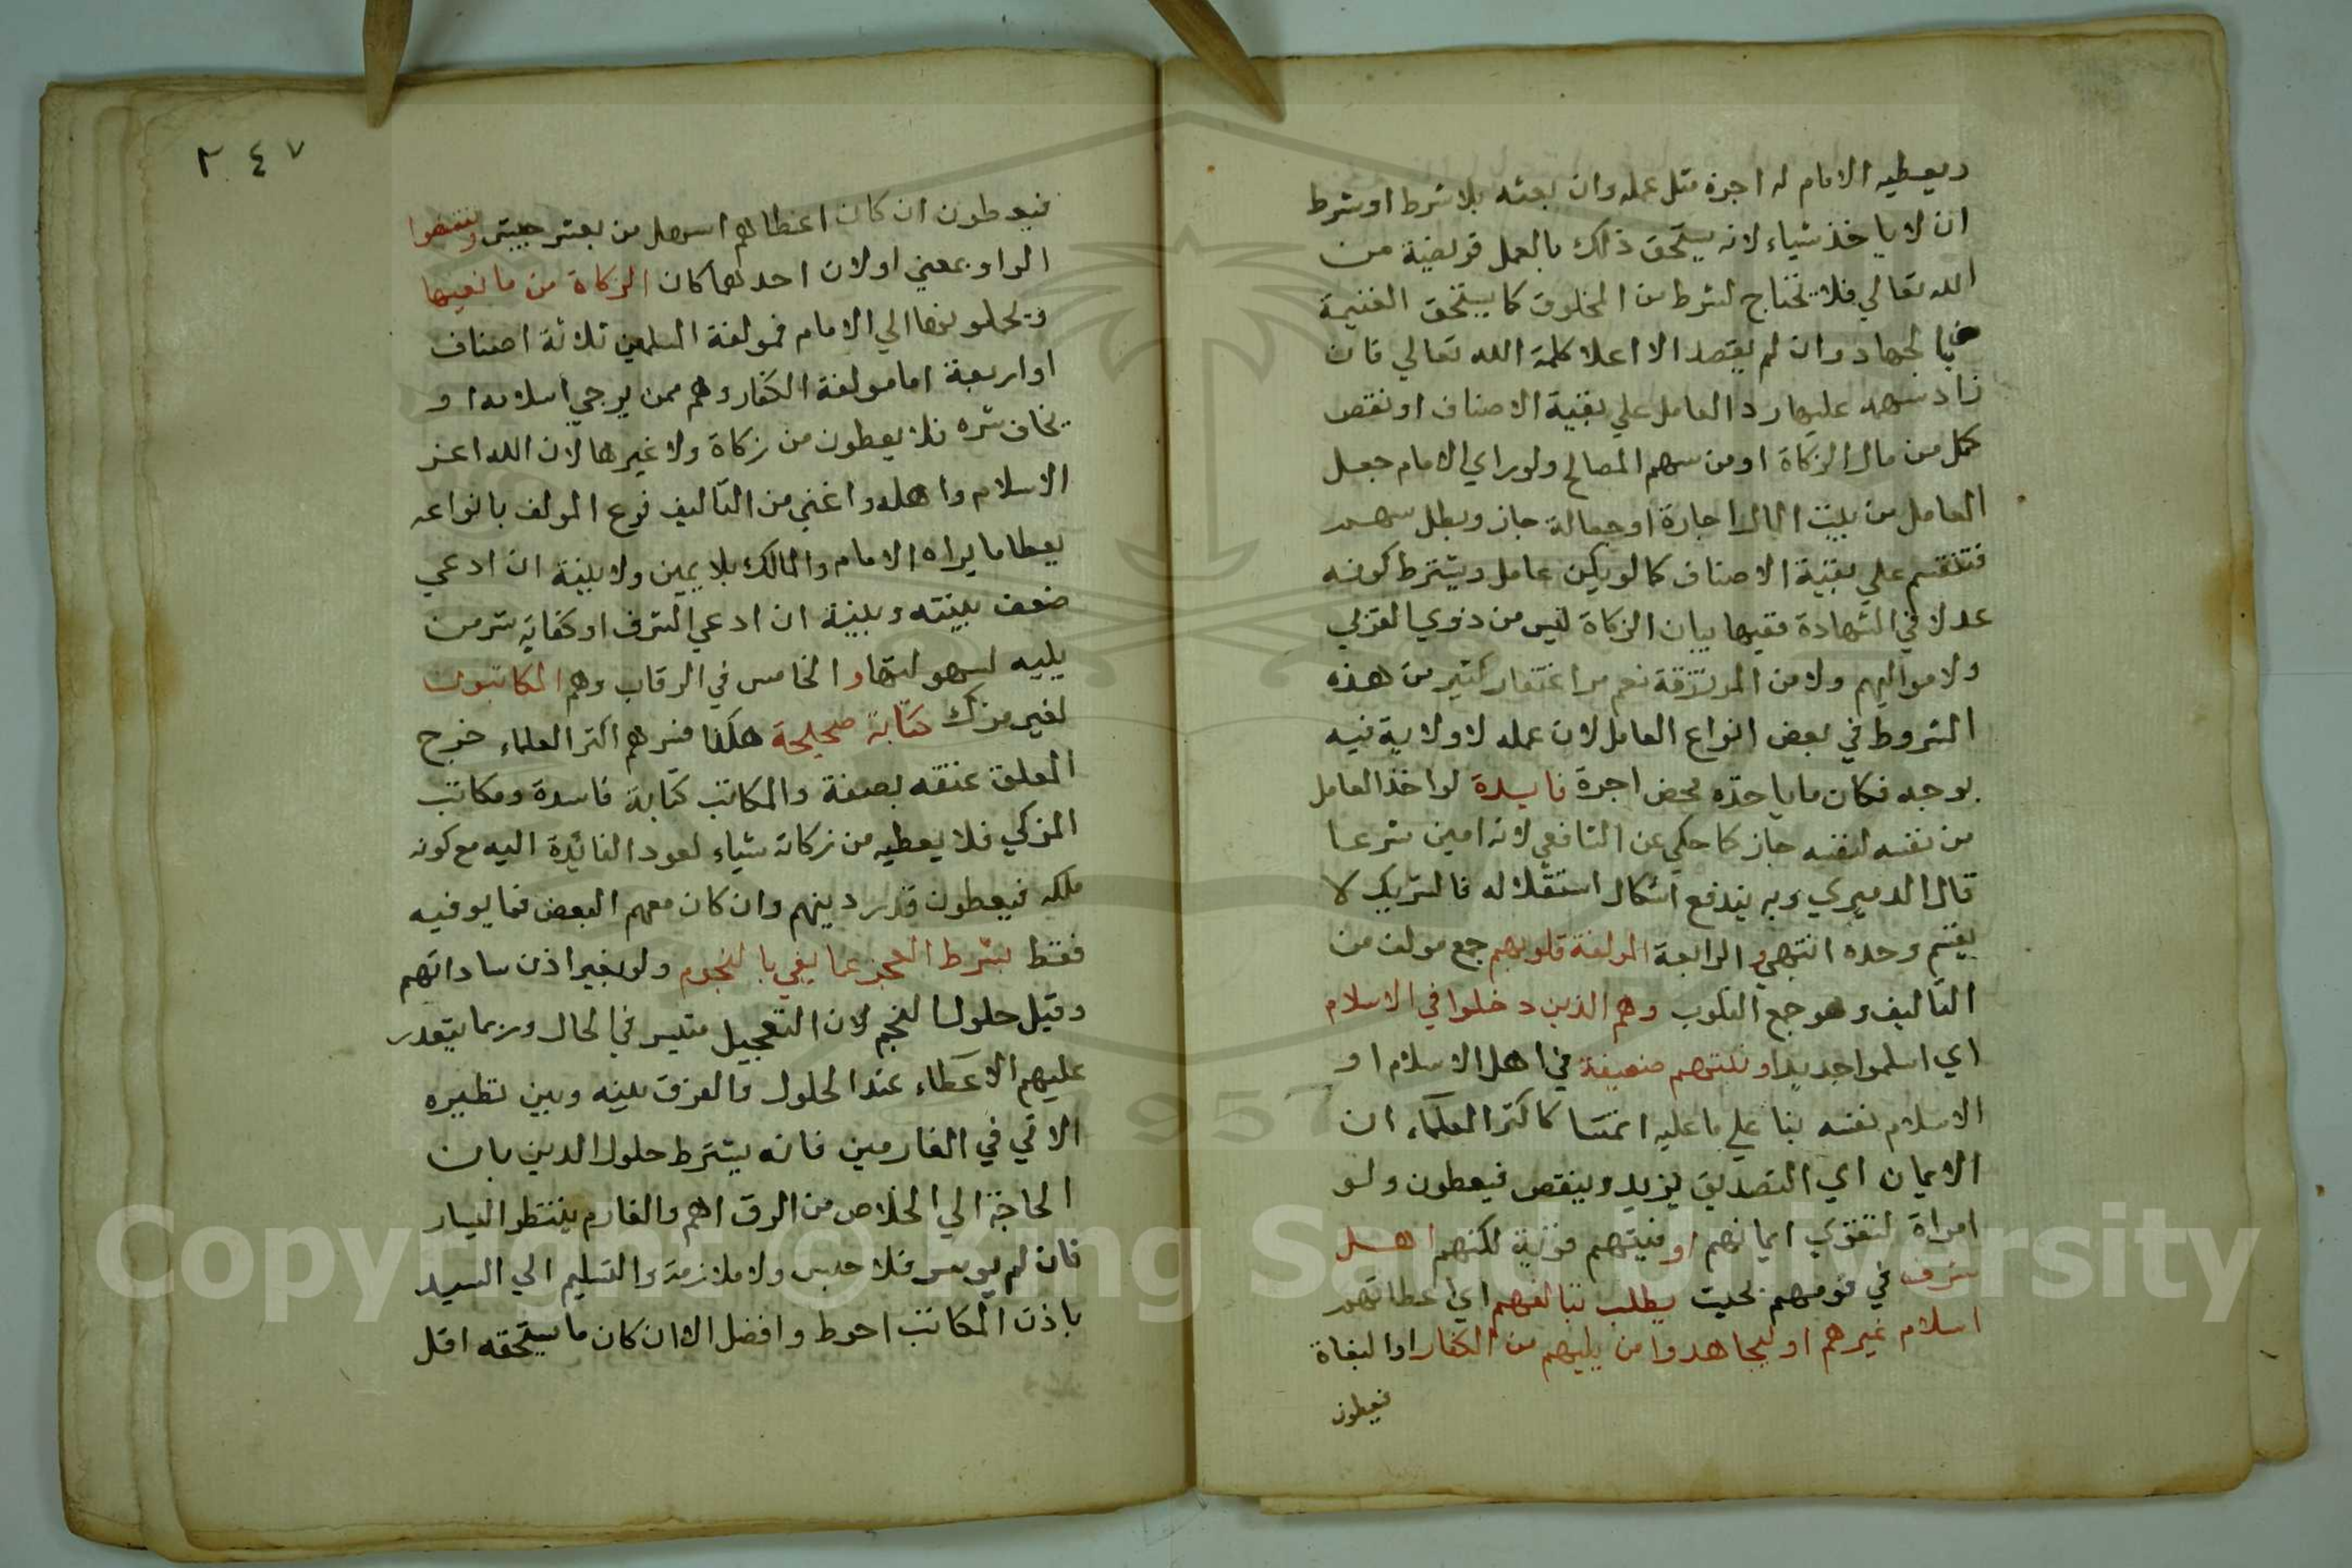 ويعطيه الامام له اجرة مثل عمله وان بعثه بلا شرط او شرط
ان لا ياخذ شياء لانه يستحق ذلك بالعمل فريضة من
الله تعالي فلا يحتاج لشرط من المخلوق كما يستحق الغنيمة
بالجهاد وان لم يقصد الا اعلا كلمة الله تعالي فان
زاد سهمه عليها رد العامل علي بقية الاصناف او نقص
كمل من مال الزكاة او من سهم المصالح ولو راي الامام جعل
العامل من بيت المال اجارة او جعالة جاز وبطل سهمه
فتنقسم علي بقية الاصناف كما لو يكن عامل ويشترط كونه
عدلا في الشهادة فقيها بباب الزكاة ليس من ذوي القربي
ولا مواليهم ولا من المرتزقة نعم مر اغتفار كثير من هذه
الشروط في بعض انواع العامل لان عمله لا ولاية فيه
بوجه فكان ما ياخذه محض اجرة فايدة لو اخذ العامل
من نفسه لنفسه جاز كما حكي عن الشافعي لانه امين شرعا
قال الدميري وبه يندفع اشكال استقلاله فالشريك لا
يقسم وحده انتهي والرابعة المولفة قلوبهم جمع مولف من
التاليف وهو جمع القلوب وهم الذين دخلوا في الاسلام
اي اسلموا جديدا ونيتهم ضعيفة في اهل الاسلام او
الاسلام نفسه بنا علي ما عليه ائمتنا كاكثر العلماء ان
الايمان اي التصديق يزيد وينقص فيعطون ولو
امراة لتقوي ايمانهم او نيتهم قوية لكنهم اهل
شرف في قومهم بحيث يطلب بتالفهم اي اعطائهم
اسلام غيرهم او ليجاهدوا من يليهم من الكفار او البغاة
فيعطون
٢٤٧
فيعطون ان كان اعطاهم اسهل من بعث جيش ويقبضوا
الواو بمعني او لان احدهما كان الزكاة من مانعيها
ويحملونها الي الامام فمولفة المسلمين ثلاثة اصناف
او اربعة اما مولفة الكفار وهم ممن يرجي اسلامه او
يخاف شره فلا يعطون من زكاة ولا غيرها لان الله اعز
الاسلام واهله واغني من التاليف فرع المولف بانواعه
يعطا ما يراه الامام والمالك بلا يمين ولا بينة ان ادعي
ضعف بينته وبينة ان ادعي الشرف او كفاية شر من
يليه لسهولتها والخامس في الرقاب وهم المكاتبون
لغير مزك كتابة صحيحة هكذا فسرهم اكثر العلماء خرج
المعلق عنقه بصفة والمكاتب كتابة فاسدة ومكاتب
المزكي فلا يعطيه من زكاته شياء لعود الفائدة اليه مع كونه
ملكه فيعطون قدر دينهم وان كان معهم البعض فما يوفيه
فقط بشرط العجز عما يفي بالنجوم ولو بغير اذن ساداتهم
وقيل حلول النجم لان التعجيل متيسر في الحال وربما يتعذر
عليهم الاعطاء عند الحلول والفرق بينه وبين نظيره
الاتي في الغارمين فانه يشترط حلول الدين بان
الحاجة الي الخلاص من الرق اهم والغارم ينتظر اليسار
فان لم يوسر فلا حبس ولا ملازمة والتسليم الي السيد
باذن المكاتب احوط وافضل الا ان كان ما يستحقه اقل